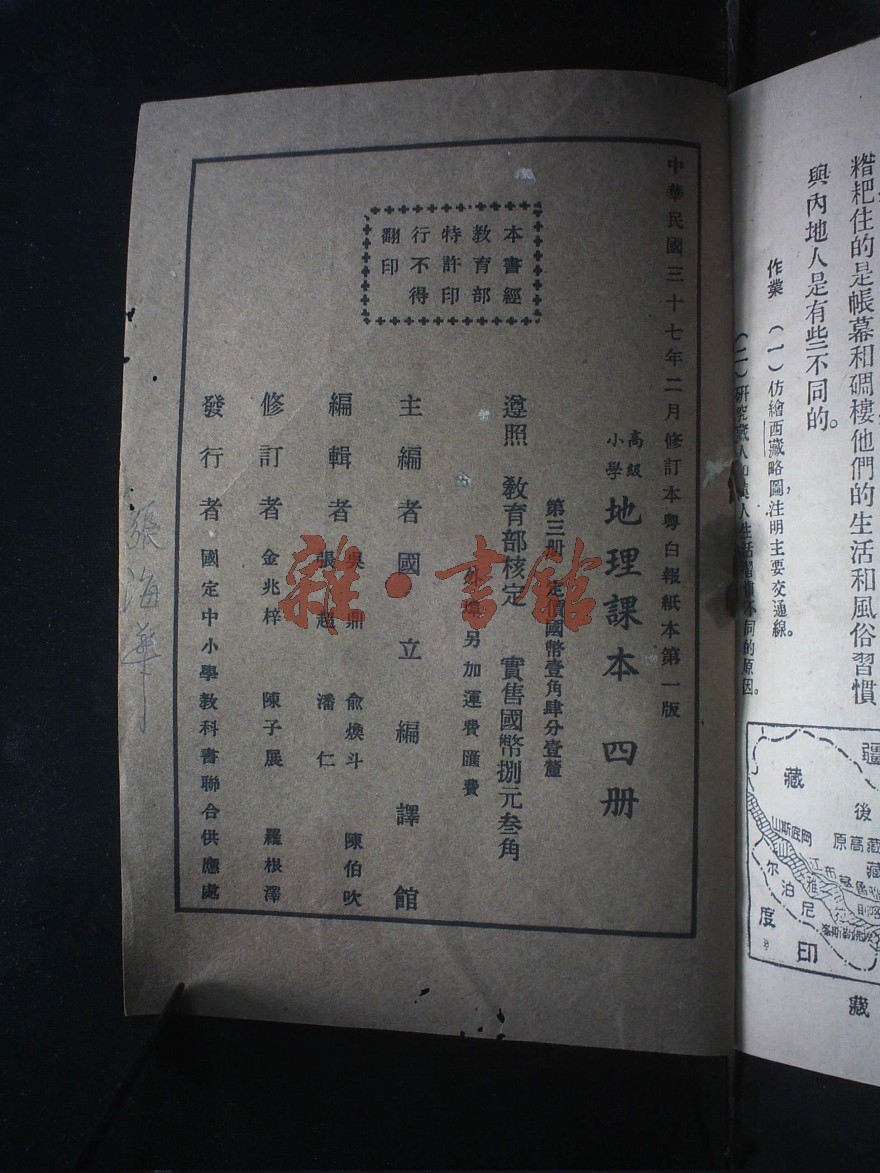 中華民國三十七年二月修訂本粵白報紙本第一版
高級
小學
地理課本 四册
第三册 定價國幣壹角肆分壹釐
遵照 教育部核定 實售國幣捌元叁角
外埠另加運費匯費
本書經
教育部
特許印
行不得
翻印
主編者國立編譯館
編輯者 吳鼎 俞煥斗 陳伯吹
張超 潘仁
修訂者 金兆梓 陳子展 羅根澤
發行者 國定中小學教科書聯合供應處
張海華
雜·書館
糌粑住的是帳幕和碉樓他們的生活和風俗習慣
與內地人是有些不同的。
作業 (一)仿繪西藏略圖,注明主要交通線。
(二)研究藏人和漢人生活習慣不同的原因。
疆
藏
後
藏
岡底斯山
藏高原
雅魯藏布江
尼泊尔
印度
藏